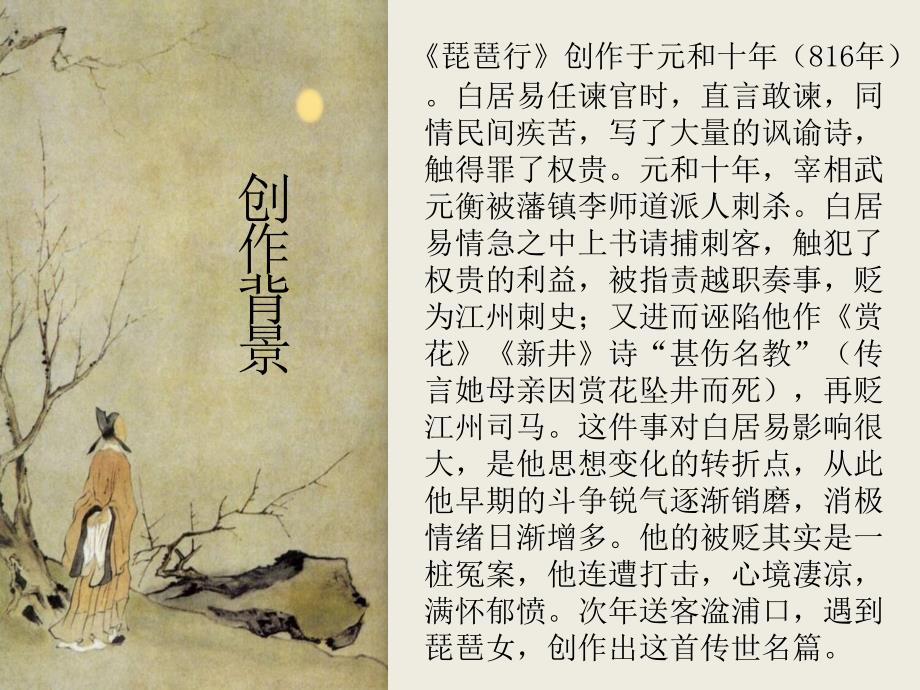 创作背景
《琵琶行》创作于元和十年（816年）
。白居易任谏官时，直言敢谏，同
情民间疾苦，写了大量的讽谕诗，
触得罪了权贵。元和十年，宰相武
元衡被藩镇李师道派人刺杀。白居
易情急之中上书请捕刺客，触犯了
权贵的利益，被指责越职奏事，贬
为江州刺史；又进而诬陷他作《赏
花》《新井》诗“甚伤名教”（传
言她母亲因赏花坠井而死），再贬
江州司马。这件事对白居易影响很
大，是他思想变化的转折点，从此
他早期的斗争锐气逐渐销磨，消极
情绪日渐增多。他的被贬其实是一
桩冤案，他连遭打击，心境凄凉，
满怀郁愤。次年送客湓浦口，遇到
琵琶女，创作出这首传世名篇。